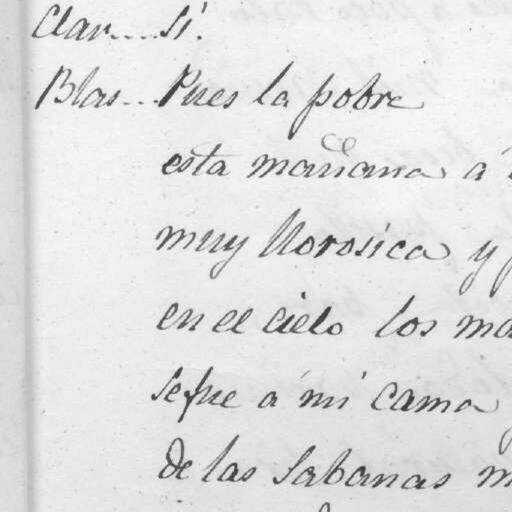 Clar.... Sí.
Blas... Pues la pobre
esta mañana á
muy llorosica y
en el cielo los
se fue á mi cama
de las Sabanas